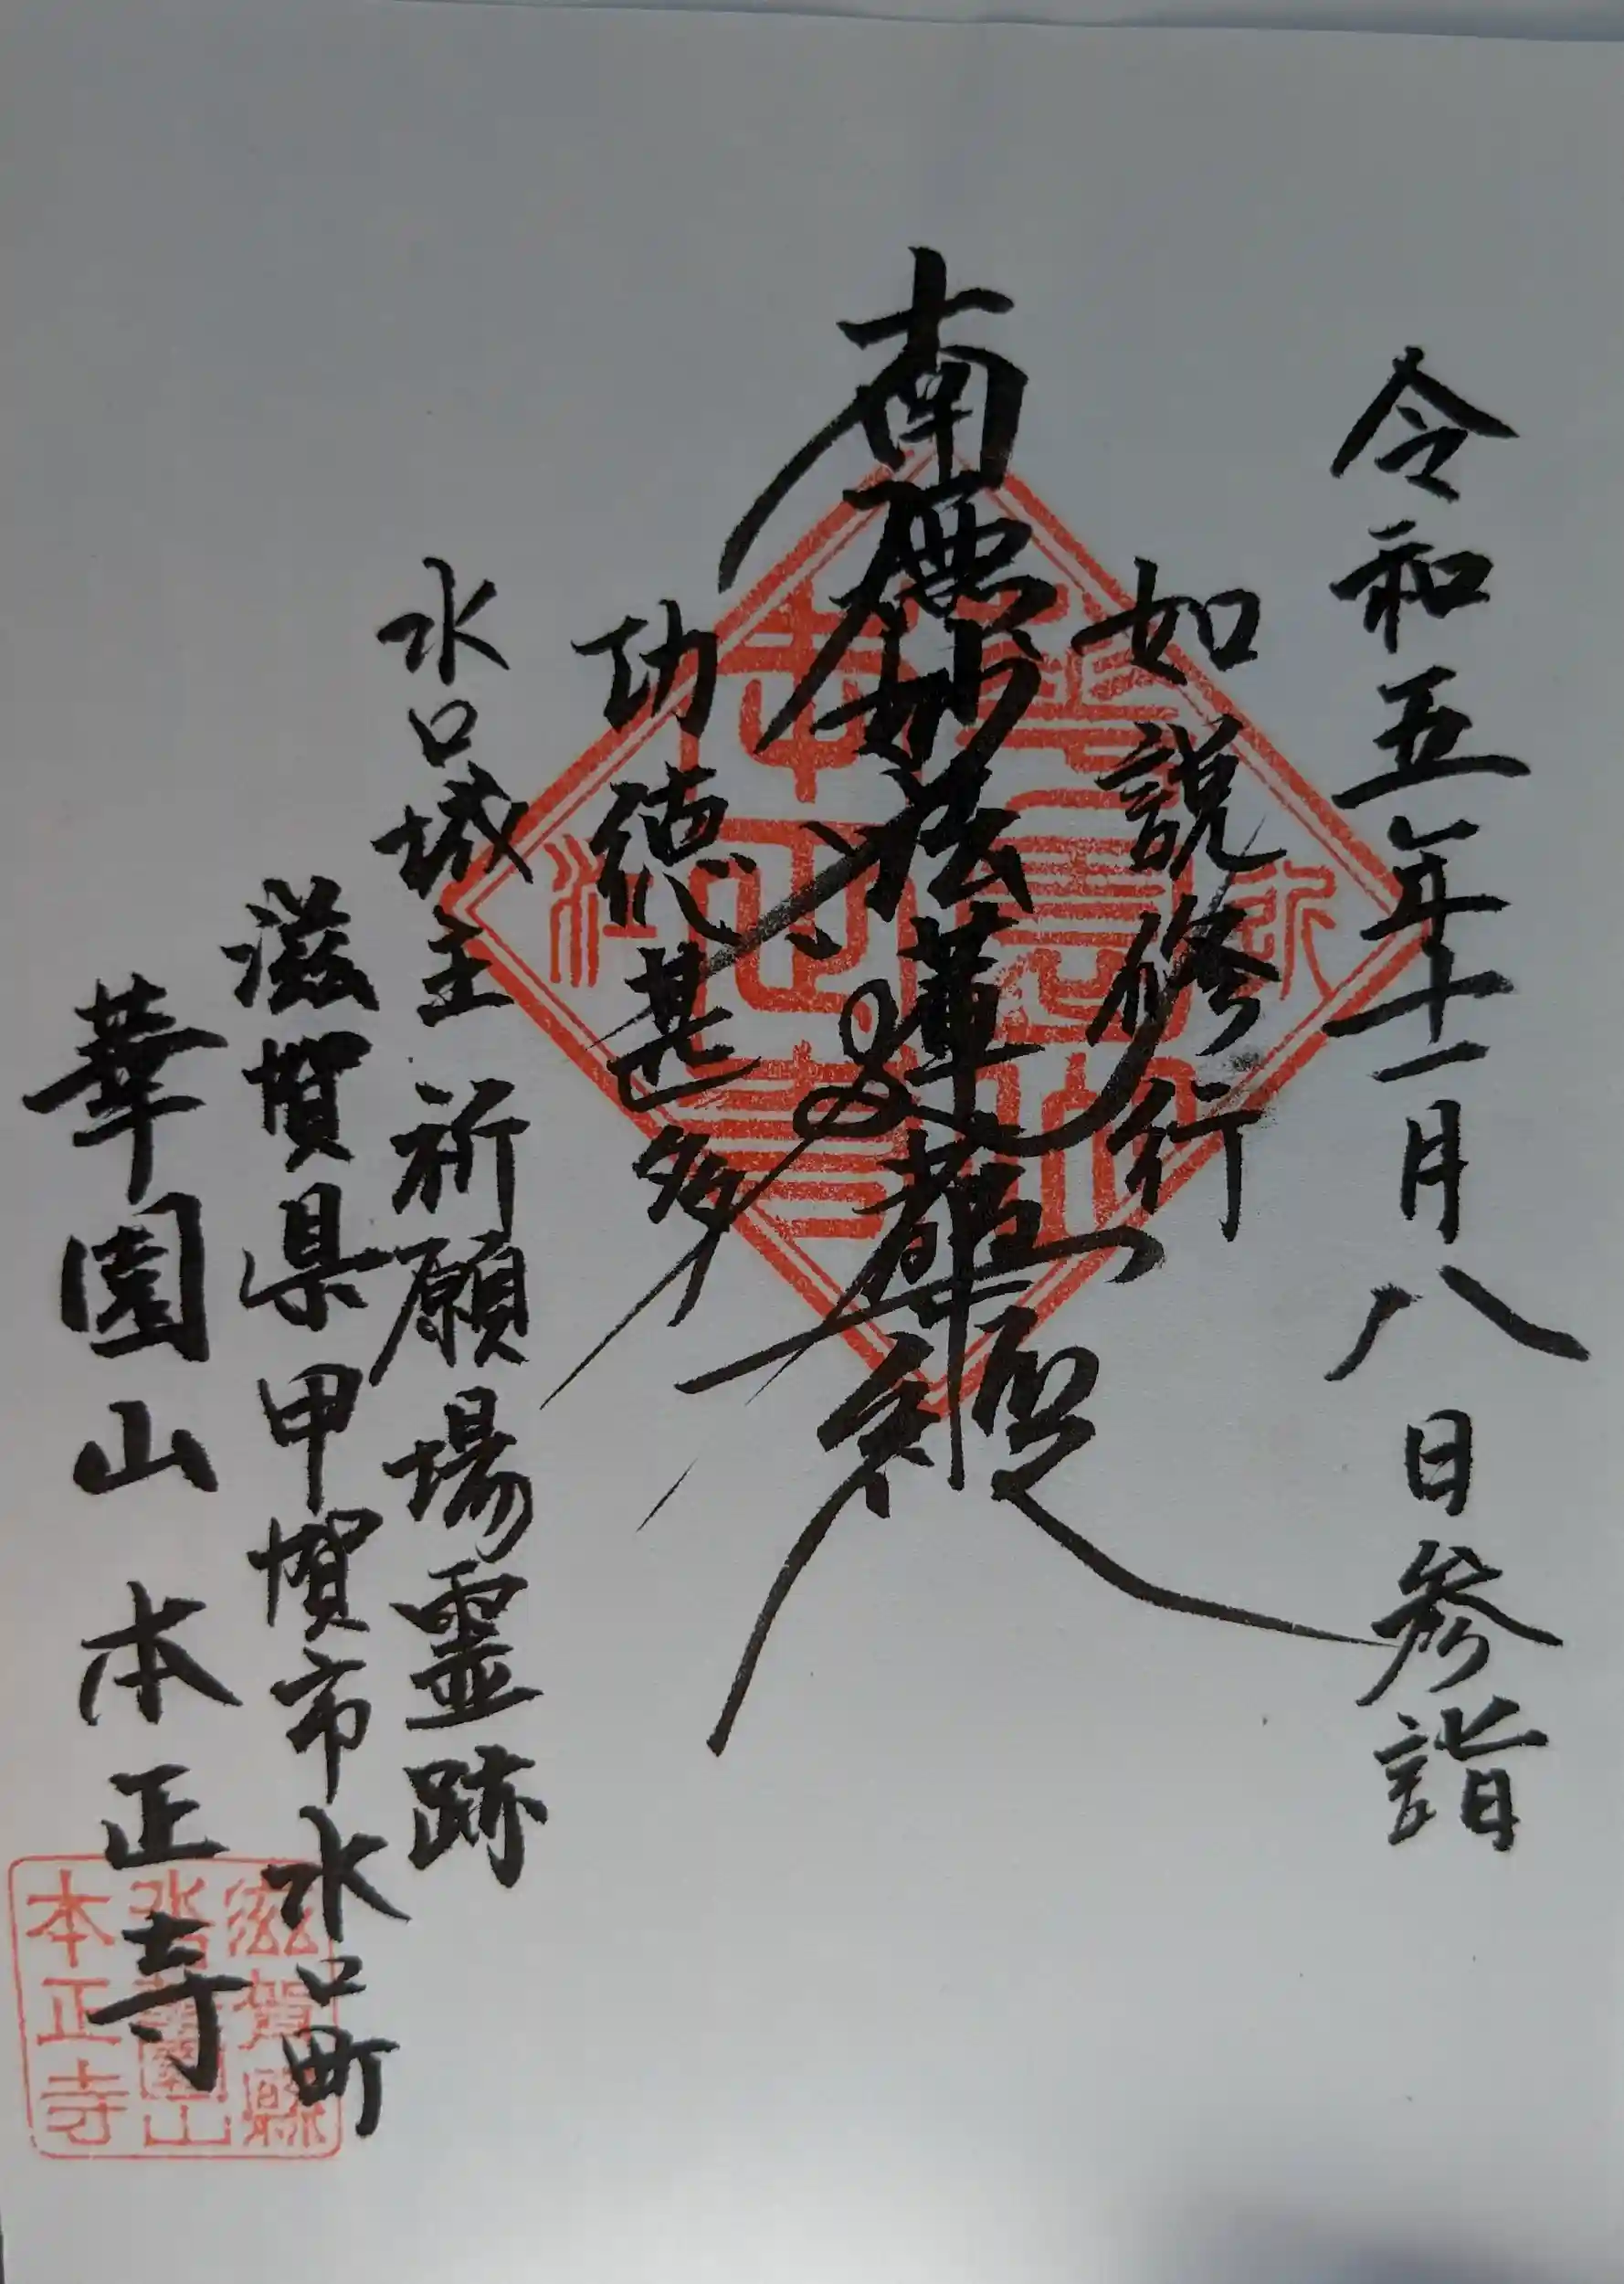 令和五年十一月八日参詣
如説修行
南無妙法蓮華経
功徳甚多
水口城主 祈願場霊跡
滋賀県甲賀市水口町
華園山 本正寺
滋賀縣
水口華園山
本正寺